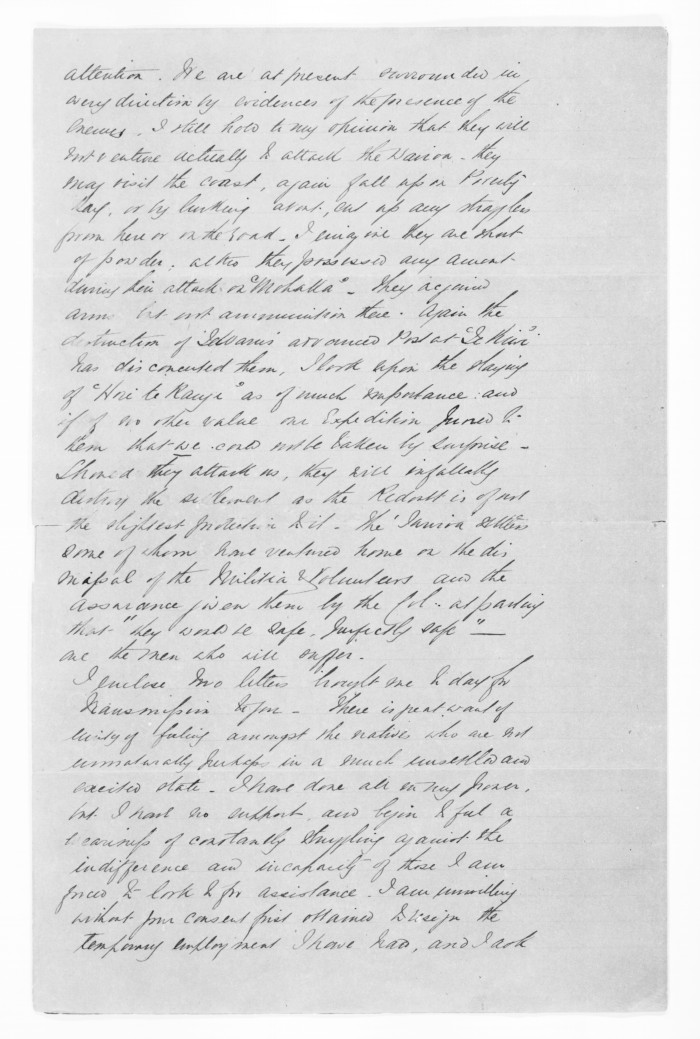 attention. We are at present surrounded in
every direction by evidences of the presence of the
Enemy. I still hold to my opinion that they will
not venture actually to attack the Wairoa - they
may visit the coast, again fall upon Poverty
Bay, or by lurking about, cut up any stragglers
from here or on the road. I imagine they are short
of powder; altho they possessed any amount
during their attack on "Mohaka" - They acquired
arms but not ammunition there. Again the
destruction of advanced Post at
has disconcerted them, I look upon the slaying
of "Hori te Kauru" as of much importance: and
if of no other value our Expedition proved to
them that we could not be taken by surprise -
Should they attack us, they will infallibly
destroy the settlement as the Redoubt is of not
the slightest protection to it - The Settlers
some of whom have ventured home on the dis
missal of the Militia & Volunteers and the
assurance given them by the Col. at parting
that "they would be safe, perfectly safe" —
are the men who will suffer.
I enclose two letters brought me to day for
transmission to you - There is great want of
unity of feeling amongst the natives who are not
unnaturally perhaps in a much unsettled and
excited state - I have done all in my power,
but I have no support, and begin to feel a
weariness of constantly struggling against the
indifference and incapacity of those I am
forced to look to for assistance. I am unwilling
without your consent first obtained to resign the
temporary employment I have had, and I ask